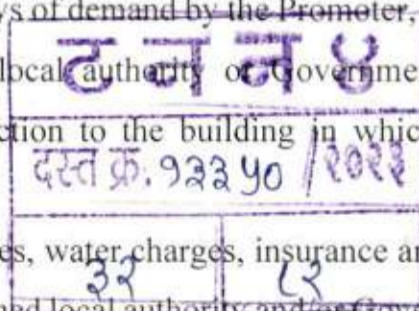 ys of demand by the Promoter,
ट न न ४
local authority or Governme
ction to the building in whic
दस्त क्र. १३३५० / २०२३
es, water charges, insurance a
३२ ८२
local authority and/or Gove